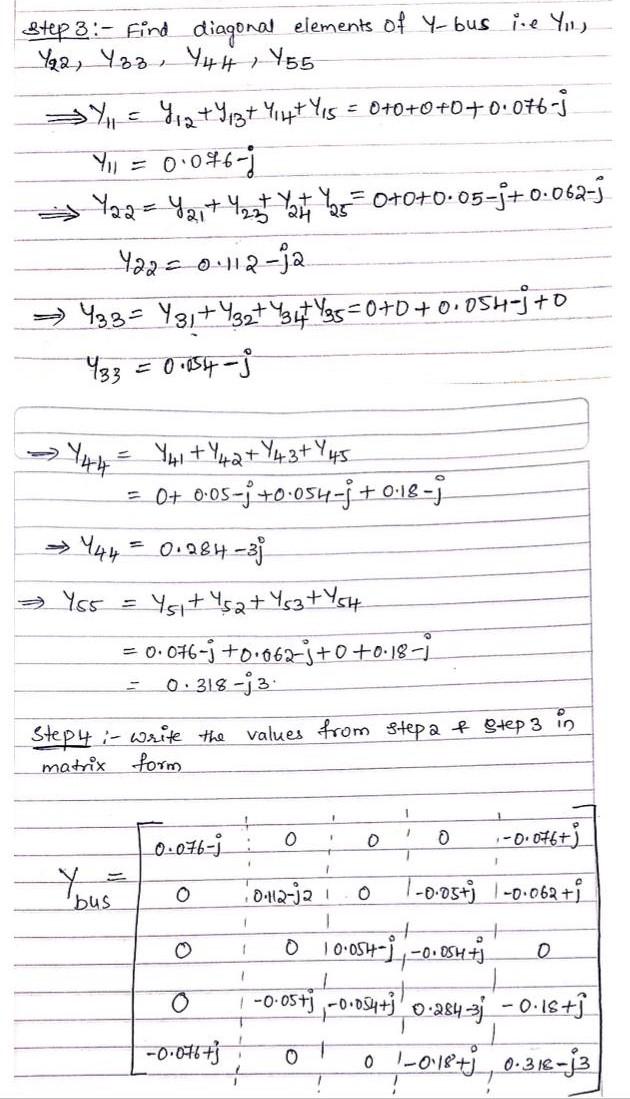 Step 3:- Find diagonal elements of Y-bus i.e Y11,
Y22, Y33, Y44, Y55
⇒ Y11 = Y12+Y13+Y14+Y15 = 0+0+0+0+0.076-j
Y11 = 0.076-j
⇒ Y22 = Y21+Y23+Y24+Y25 = 0+0+0.05-j+0.062-j
Y22 = 0.112-j2
⇒ Y33 = Y31+Y32+Y34+Y35 = 0+0+0.054-j+0
Y33 = 0.054-j
⇒ Y44 = Y41+Y42+Y43+Y45
= 0+ 0.05-j+0.054-j+0.18-j
⇒ Y44 = 0.284-3j
⇒ Y55 = Y51+Y52+Y53+Y54
= 0.076-j+0.062-j+0+0.18-j
= 0.318-j3.
Step4 :- Write the values from step2 & step3 in
matrix form
0.076-j 0 0 0 -0.076+j
Ybus = 0 0.112-j2 0 -0.05+j -0.062+j
0 0 0.054-j -0.054+j 0
0 -0.05+j -0.054+j 0.284-3j -0.18+j
-0.076+j 0 0 -0.18+j 0.318-j3